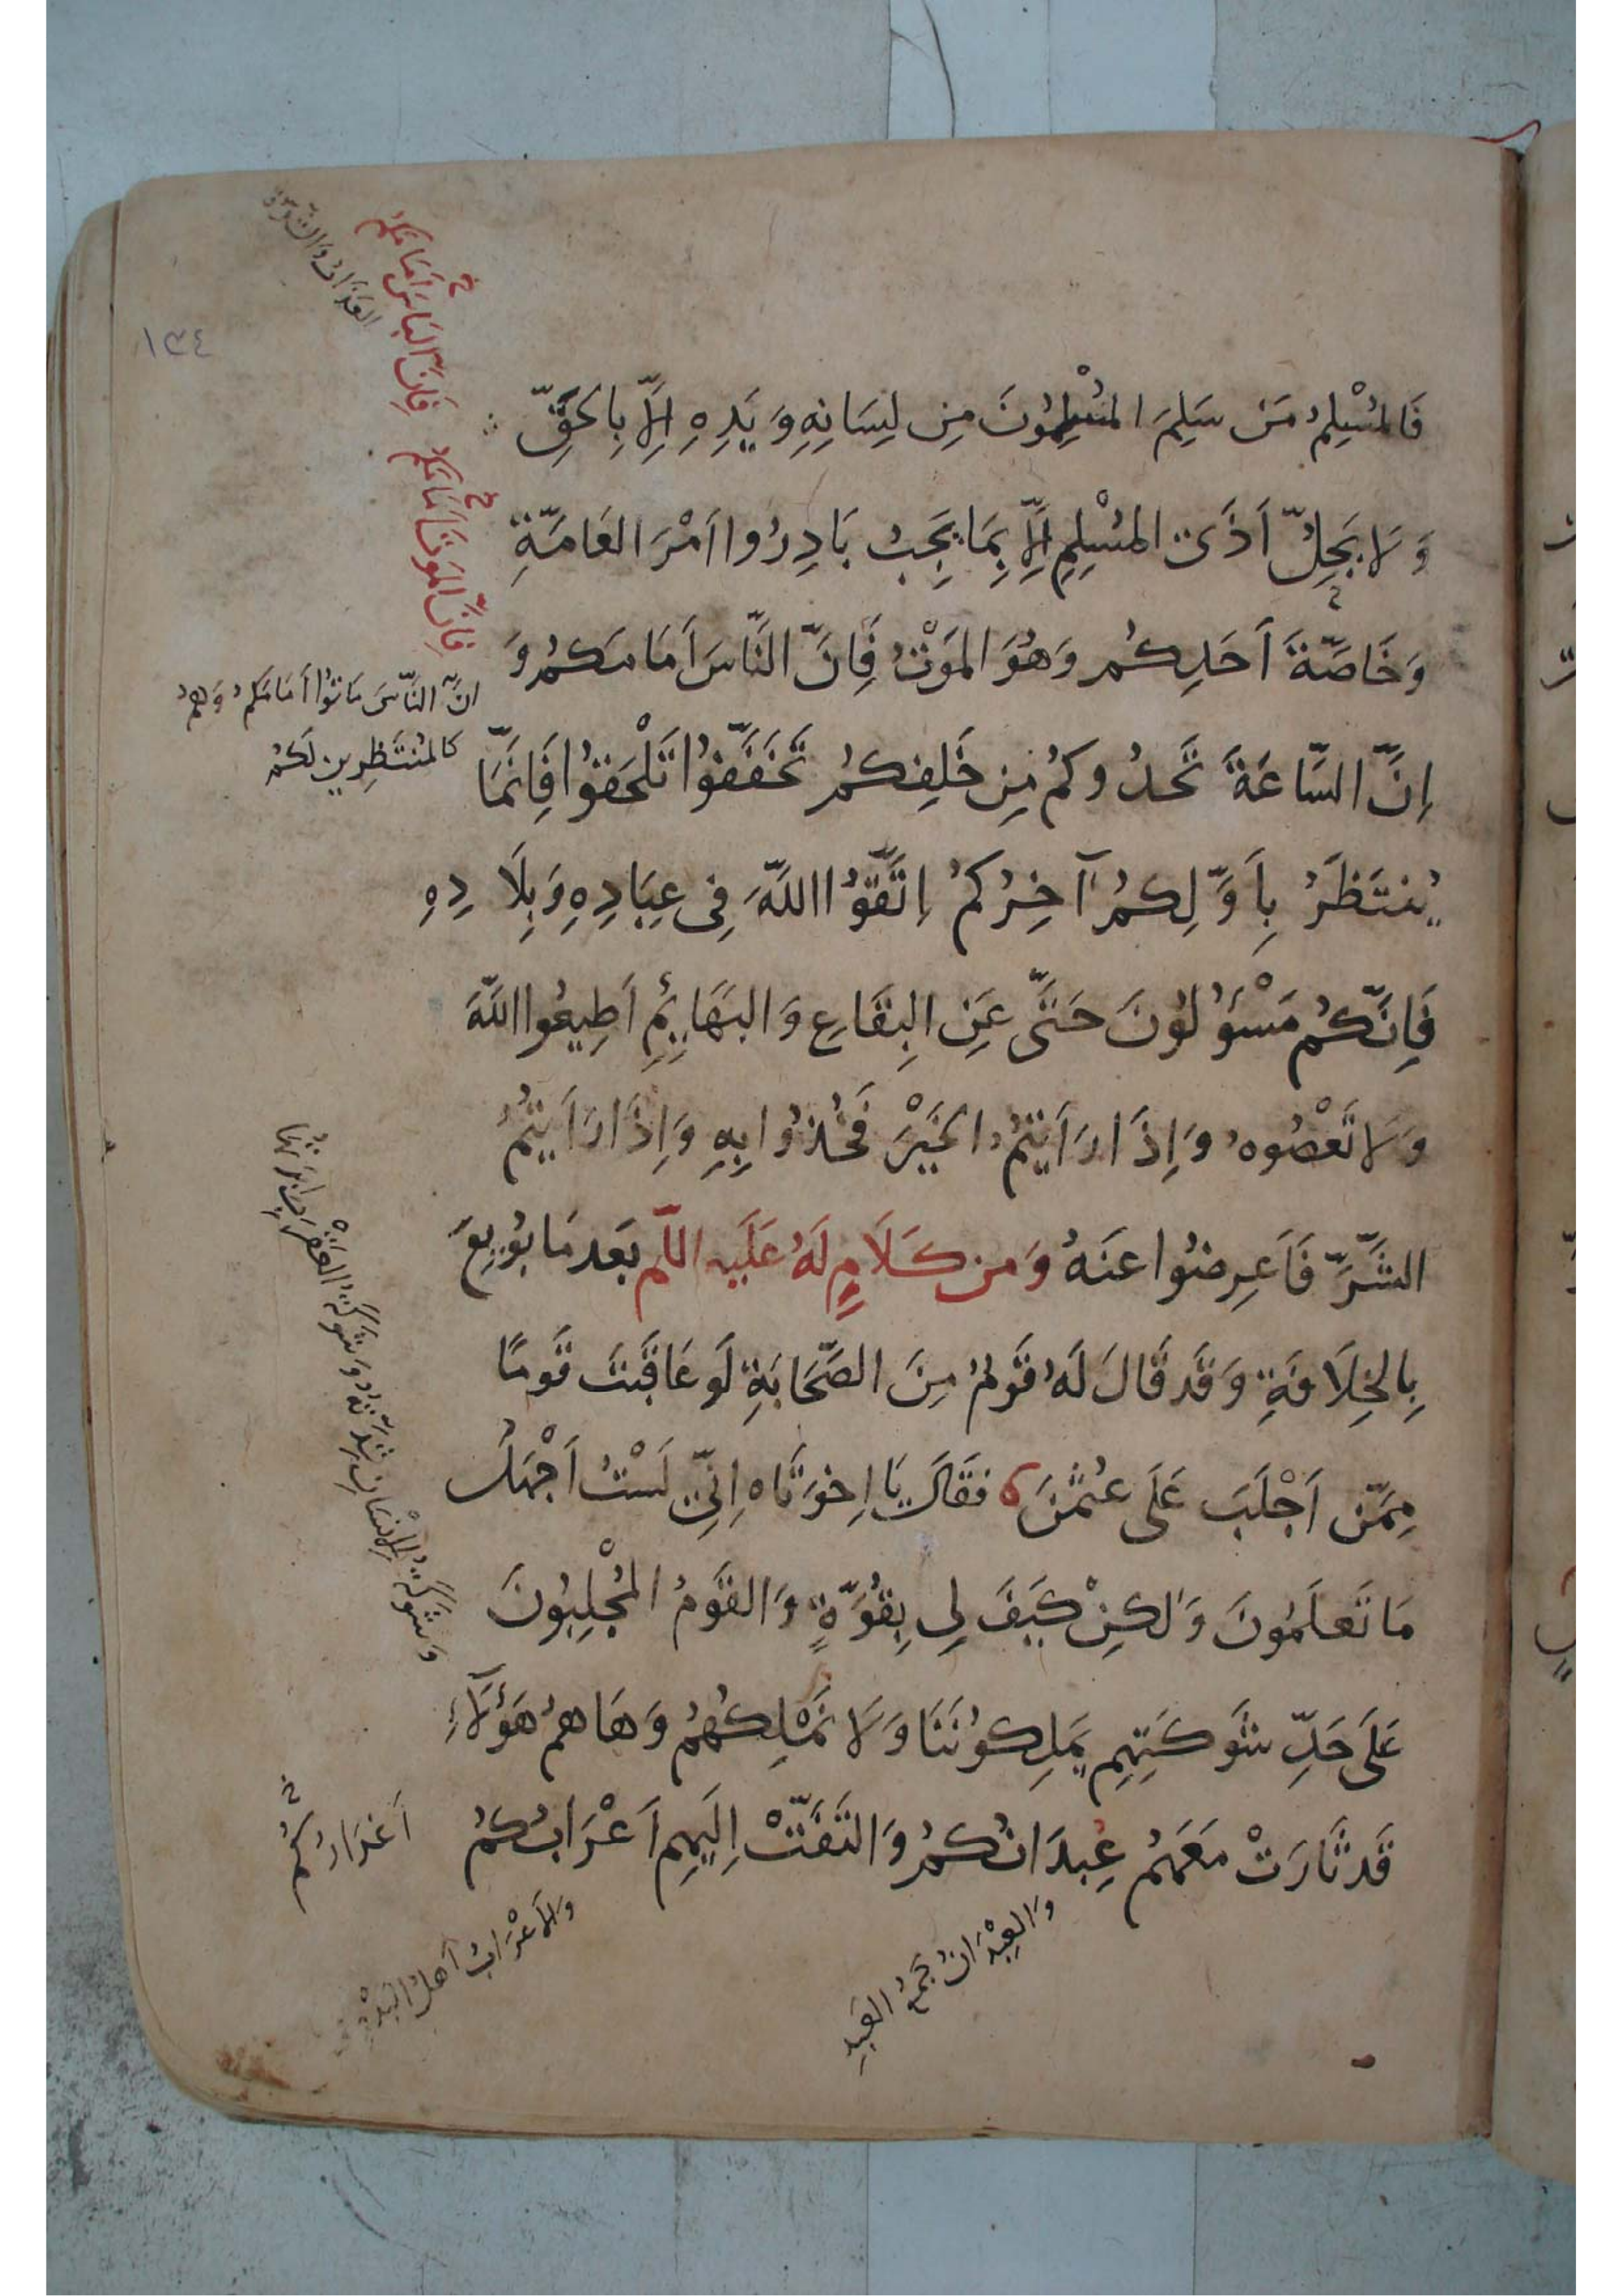 ١٣٤
فَالمُسْلِمُ مَن سَلِمَ المُسْلِمُونَ مِن لِسَانِهِ وَيَدِهِ اِلَّا بِالحَقِّ
وَلَا يَحِلُّ اَذَى المُسْلِمِ اِلَّا بِمَا يَجِبُ بَادِرُوا اَمْرَ العَامَّةِ
وَخَاصَّةَ اَحَدِكُم وَهُوَ المَوْتُ فَاِنَّ النَّاسَ اَمَامَكُم وَ
اِنَّ السَّاعَةَ تَحدُوكُم مِن خَلفِكُم تَخَفَّفُوا تَلْحَقُوا فَاِنَّمَا
يُنتَظَرُ بِاَوَّلِكُم آخِرُكُم اِتَّقُوا اللهَ فِى عِبَادِهِ وَبِلَادِهِ
فَاِنَّكُم مَسْؤُلُونَ حَتَّى عَنِ البِقَاعِ وَالبَهَائِمِ اَطِيعُوا اللهَ
وَلَا تَعْصُوهُ وَاِذَا رَاَيتُمُ الخَيْرَ فَخُذُوا بِهِ وَاِذَا رَاَيتُمُ
الشَّرَّ فَاَعرِضُوا عَنهُ وَمن كَلَامٍ لَهُ عَلَيه اللّم بَعدَ مَا بُويِعَ
بِالخِلَافَةِ وَقَد قَالَ لَهُ قَومٌ مِنَ الصَّحَابَةِ لَو عَاقَبتَ قَومًا
مِمَّن اَجْلَبَ عَلَى عُثمٰنَ فَقَالَ يَا اِخوَتَاه اِنِّى لَسْتُ اَجْهَلُ
مَا تَعلَمُونَ وَلٰكِنْ كَيفَ لِى بِقُوَّةٍ وَالقَومُ المُجْلِبُونَ
عَلَى حَدِّ شَوكَتِهِم يَملِكُونَنَا وَلَا نَمْلِكُهُم وَهَا هُم هَؤُلَاءِ
قَد ثَارَتْ مَعَهُم عِبدَانُكُم وَالتَفَّتْ اِلَيهِم اَعْرَابُكُم
فَاِنَّ البَاسَ اَمَامَكُم
فَاِنَّ المَوتَ اَمَامَكُم
اِنَّ النَّاسَ مَاتُوا اَمَامَكُم وَهُم
كَالمُنتَظِرِينَ لَكُم
وَشَوكَةُ الاِنسَانِ شِدَّتُهُ وَشَوكَةُ العَقْرَبِ اِبرَتُهَا
وَالعِبْدَانُ جَمعُ العَبدِ
وَالاَعْرَابُ اَهلُ البَدْوِ